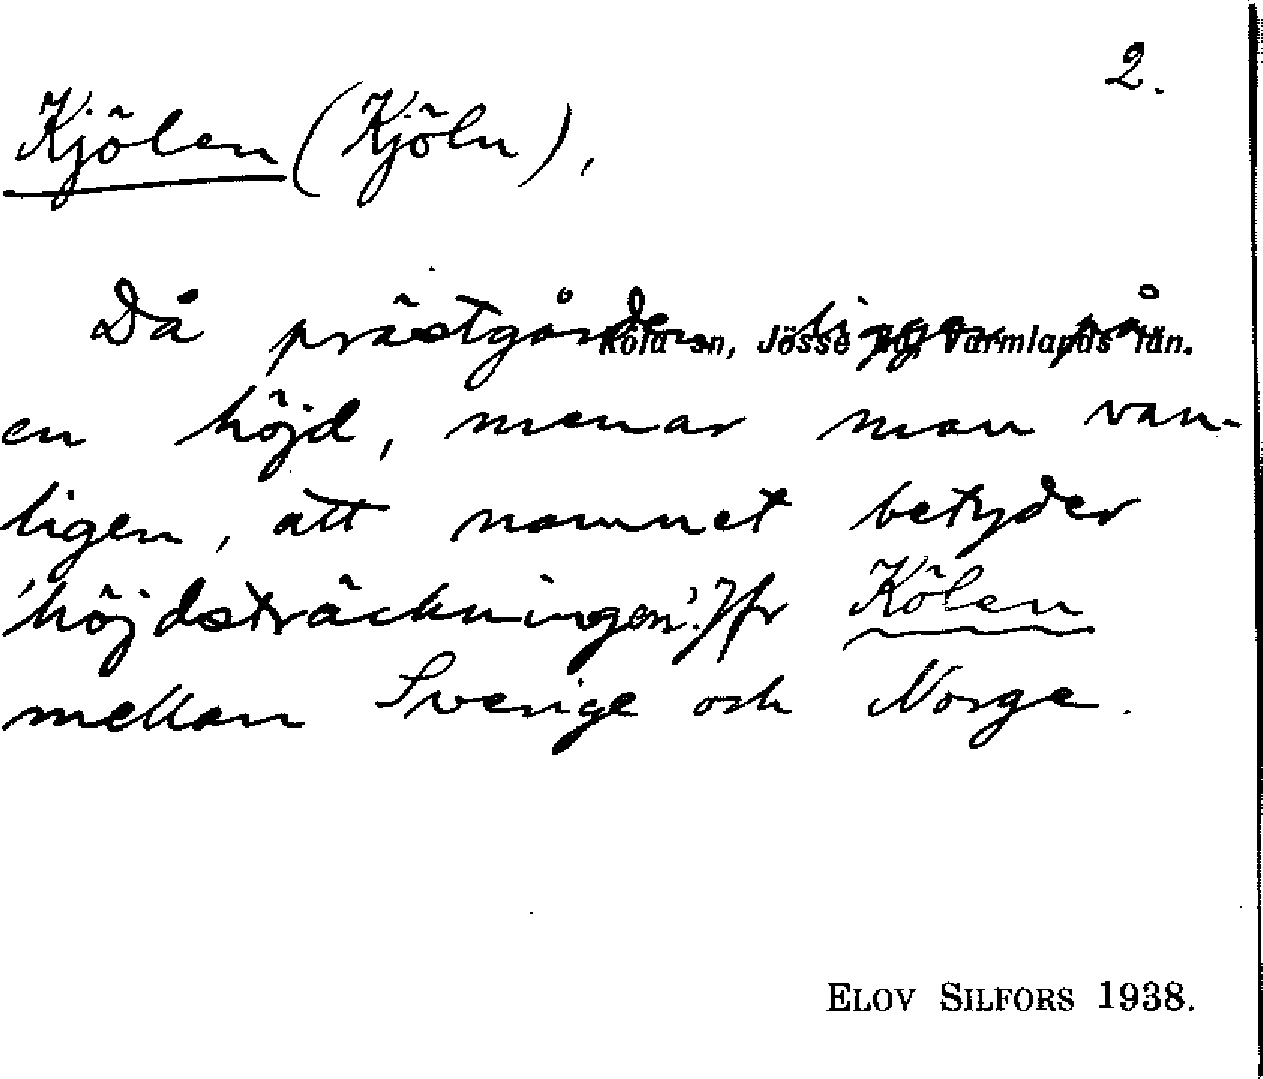 2.
Kjölen (Kjöln),
Då prästgården ligger på
Köla sn, Jösse hd, Värmlands län.
en höjd, menar man van-
ligen, att namnet betyder
'höjdsträckningen'. Jfr Kölen
mellan Sverige och Norge.
ELOV SILFORS 1938.